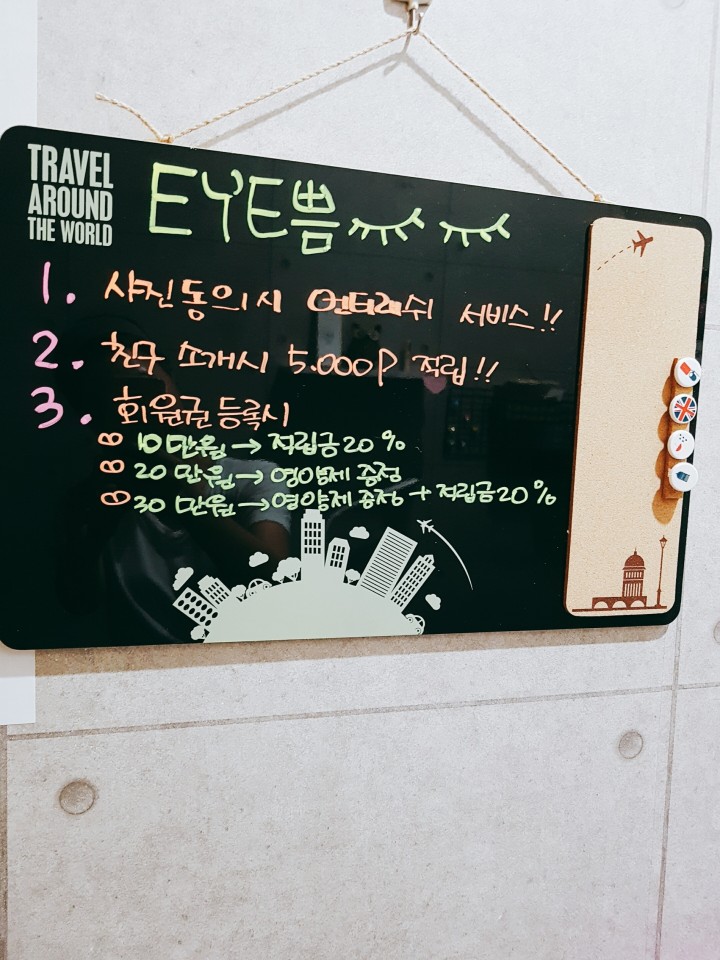 TRAVEL
AROUND
THE WORLD
EYE쁨
1. 사진동의시 언더래쉬 서비스!!
2. 친구 소개시 5.000P 적립!!
3. 회원권 등록시
10만원 → 적립금 20%
20만원 → 영양제 증정
30만원 → 영양제 증정 + 적립금 20%